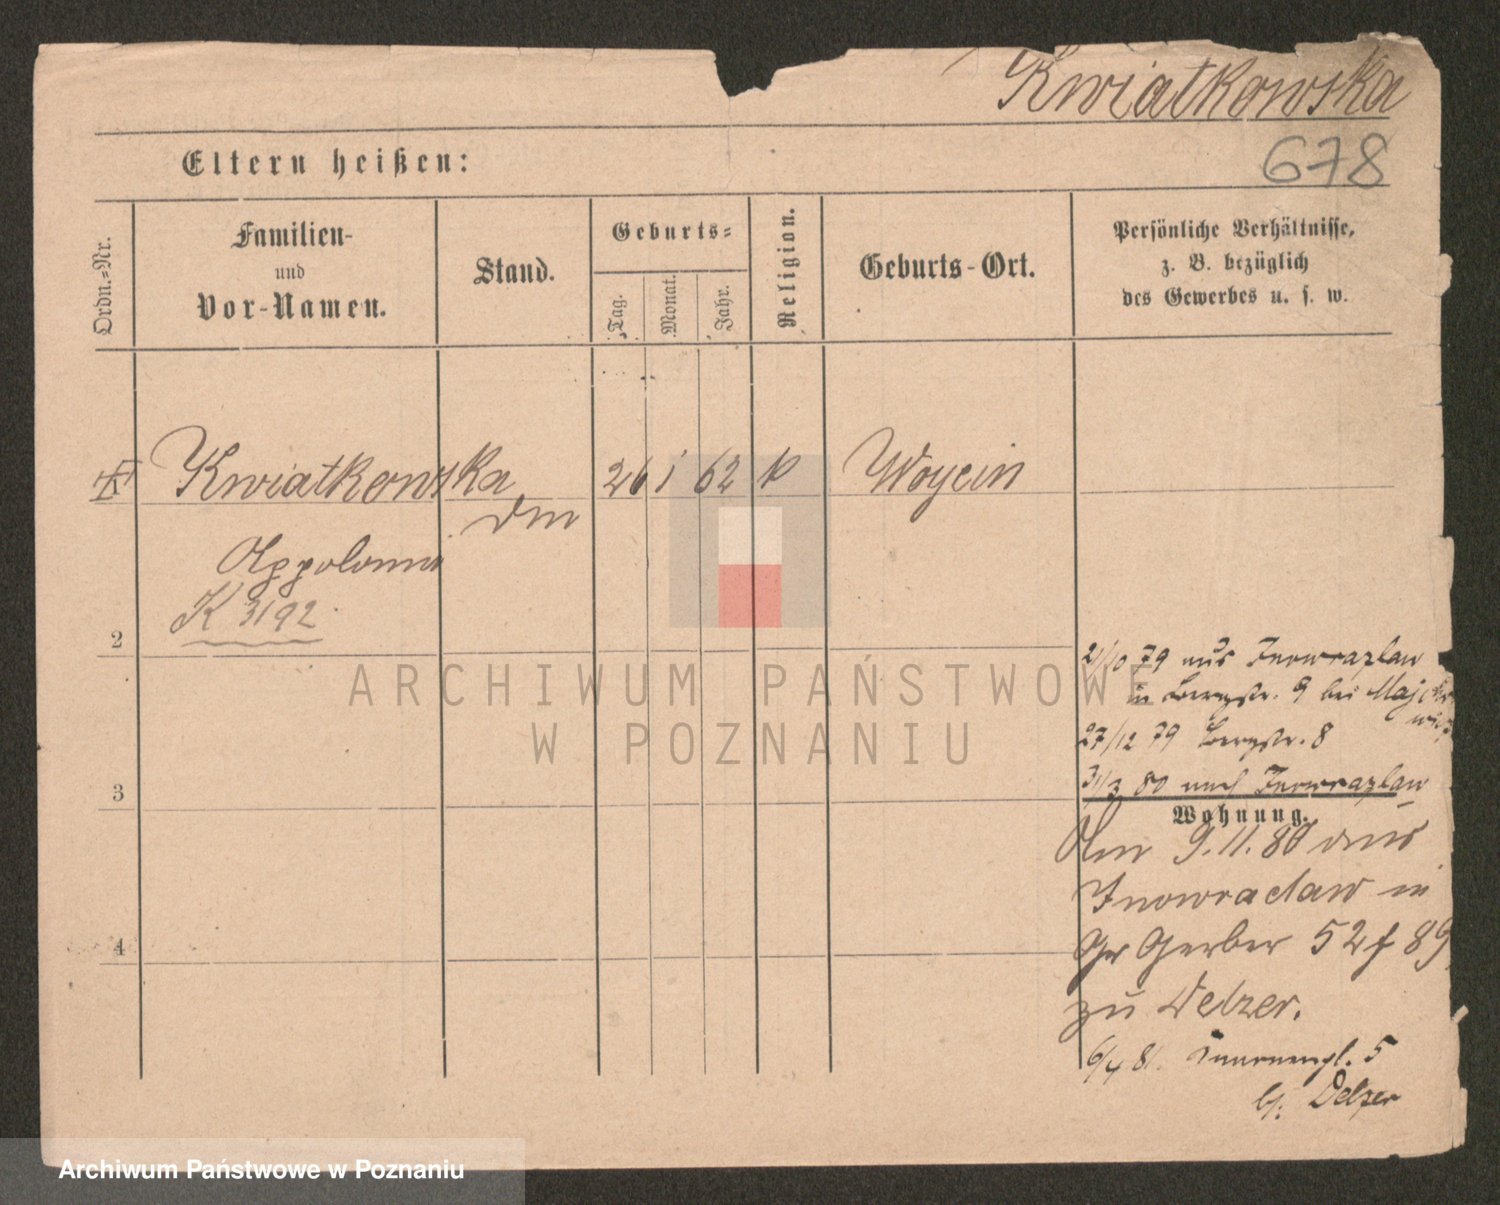 Kwiatkowska
678
Eltern heißen:
Ordn.-Nr.
Familien-
und
Vor-Namen.
Stand.
Geburts-
Tag.
Monat.
Jahr.
Religion.
Geburts-Ort.
Persönliche Verhältnisse,
z. B. bezüglich
des Gewerbes u. s. w.
Kwiatkowska 26 1 62 k Woycin
Appolonia
K 3192
2
3
4
21/10 79 aus Inowrazlaw
in Bergstr. 9 bei
27/12 79 Bergstr. 8
31/3 80 nach Inowrazlaw
Wohnung.
Am 9.11.80 aus
Inowraclaw in
Gr Gerber 52
zu Delzer.
6/4 81. 5
b. Delzer
ARCHIWUM PAŃSTWOWE
W POZNANIU
Archiwum Państwowe w Poznaniu